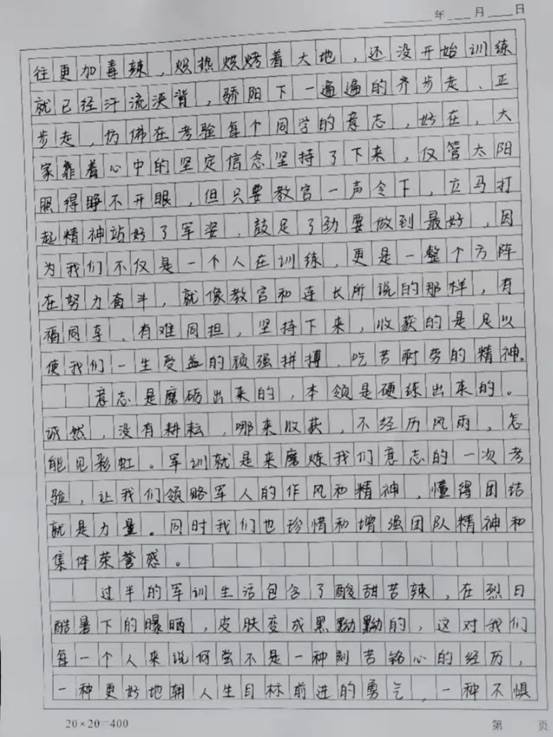 年 月 日
往更加毒辣，炽热烘烤着大地，还没开始训练
就已经汗流浃背，骄阳下一遍遍的齐步走、正
步走，仿佛在考验每个同学的意志，好在，大
家靠着心中的坚定信念坚持了下来，仅管太阳
照得睁不开眼，但只要教官一声令下，立马打
起精神站好了军姿，鼓足了劲要做到最好，因
为我们不仅是一个人在训练，更是一整个方阵
在努力奋斗，就像教官和连长所说的那样，有
福同享、有难同担，坚持下来，收获的是足以
使我们一生受益的顽强拼搏、吃苦耐劳的精神。
意志是磨砺出来的，本领是硬练出来的。
诚然，没有耕耘，哪来收获，不经历风雨，怎
能见彩虹。军训就是来磨炼我们意志的一次考
验，让我们领略军人的作风和精神，懂得团结
就是力量。同时我们也珍惜和增强团队精神和
集体荣誉感。
过半的军训生活包含了酸甜苦辣，在烈日
酷暑下的曝晒，皮肤变成黑黝黝的，这对我们
每一个人来说何尝不是一种刻苦铭心的经历，
一种更好地朝人生目标前进的勇气，一种不惧
20×20=400 第 页